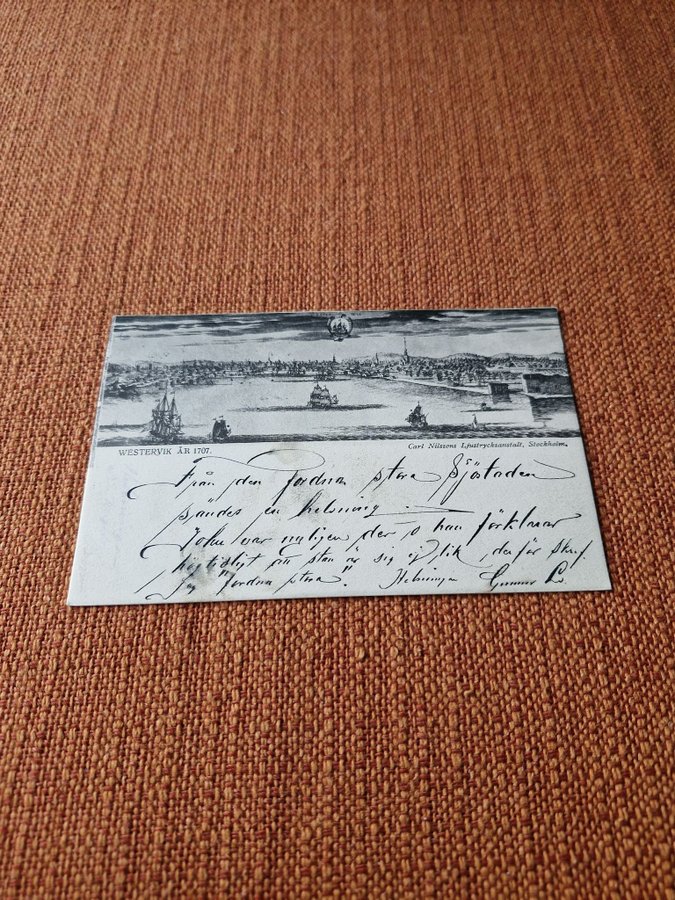 WESTERVIK ÅR 1707.
Carl Nilssons Ljustrycksanstalt, Stockholm.
Från den fordna stora Sjöstaden
sändes en helsning.
John var nyligen der o han förklarar
högtidligt att stan är sig ej lik, derför skref
jag "fordna stora". Helsningar Gunnar